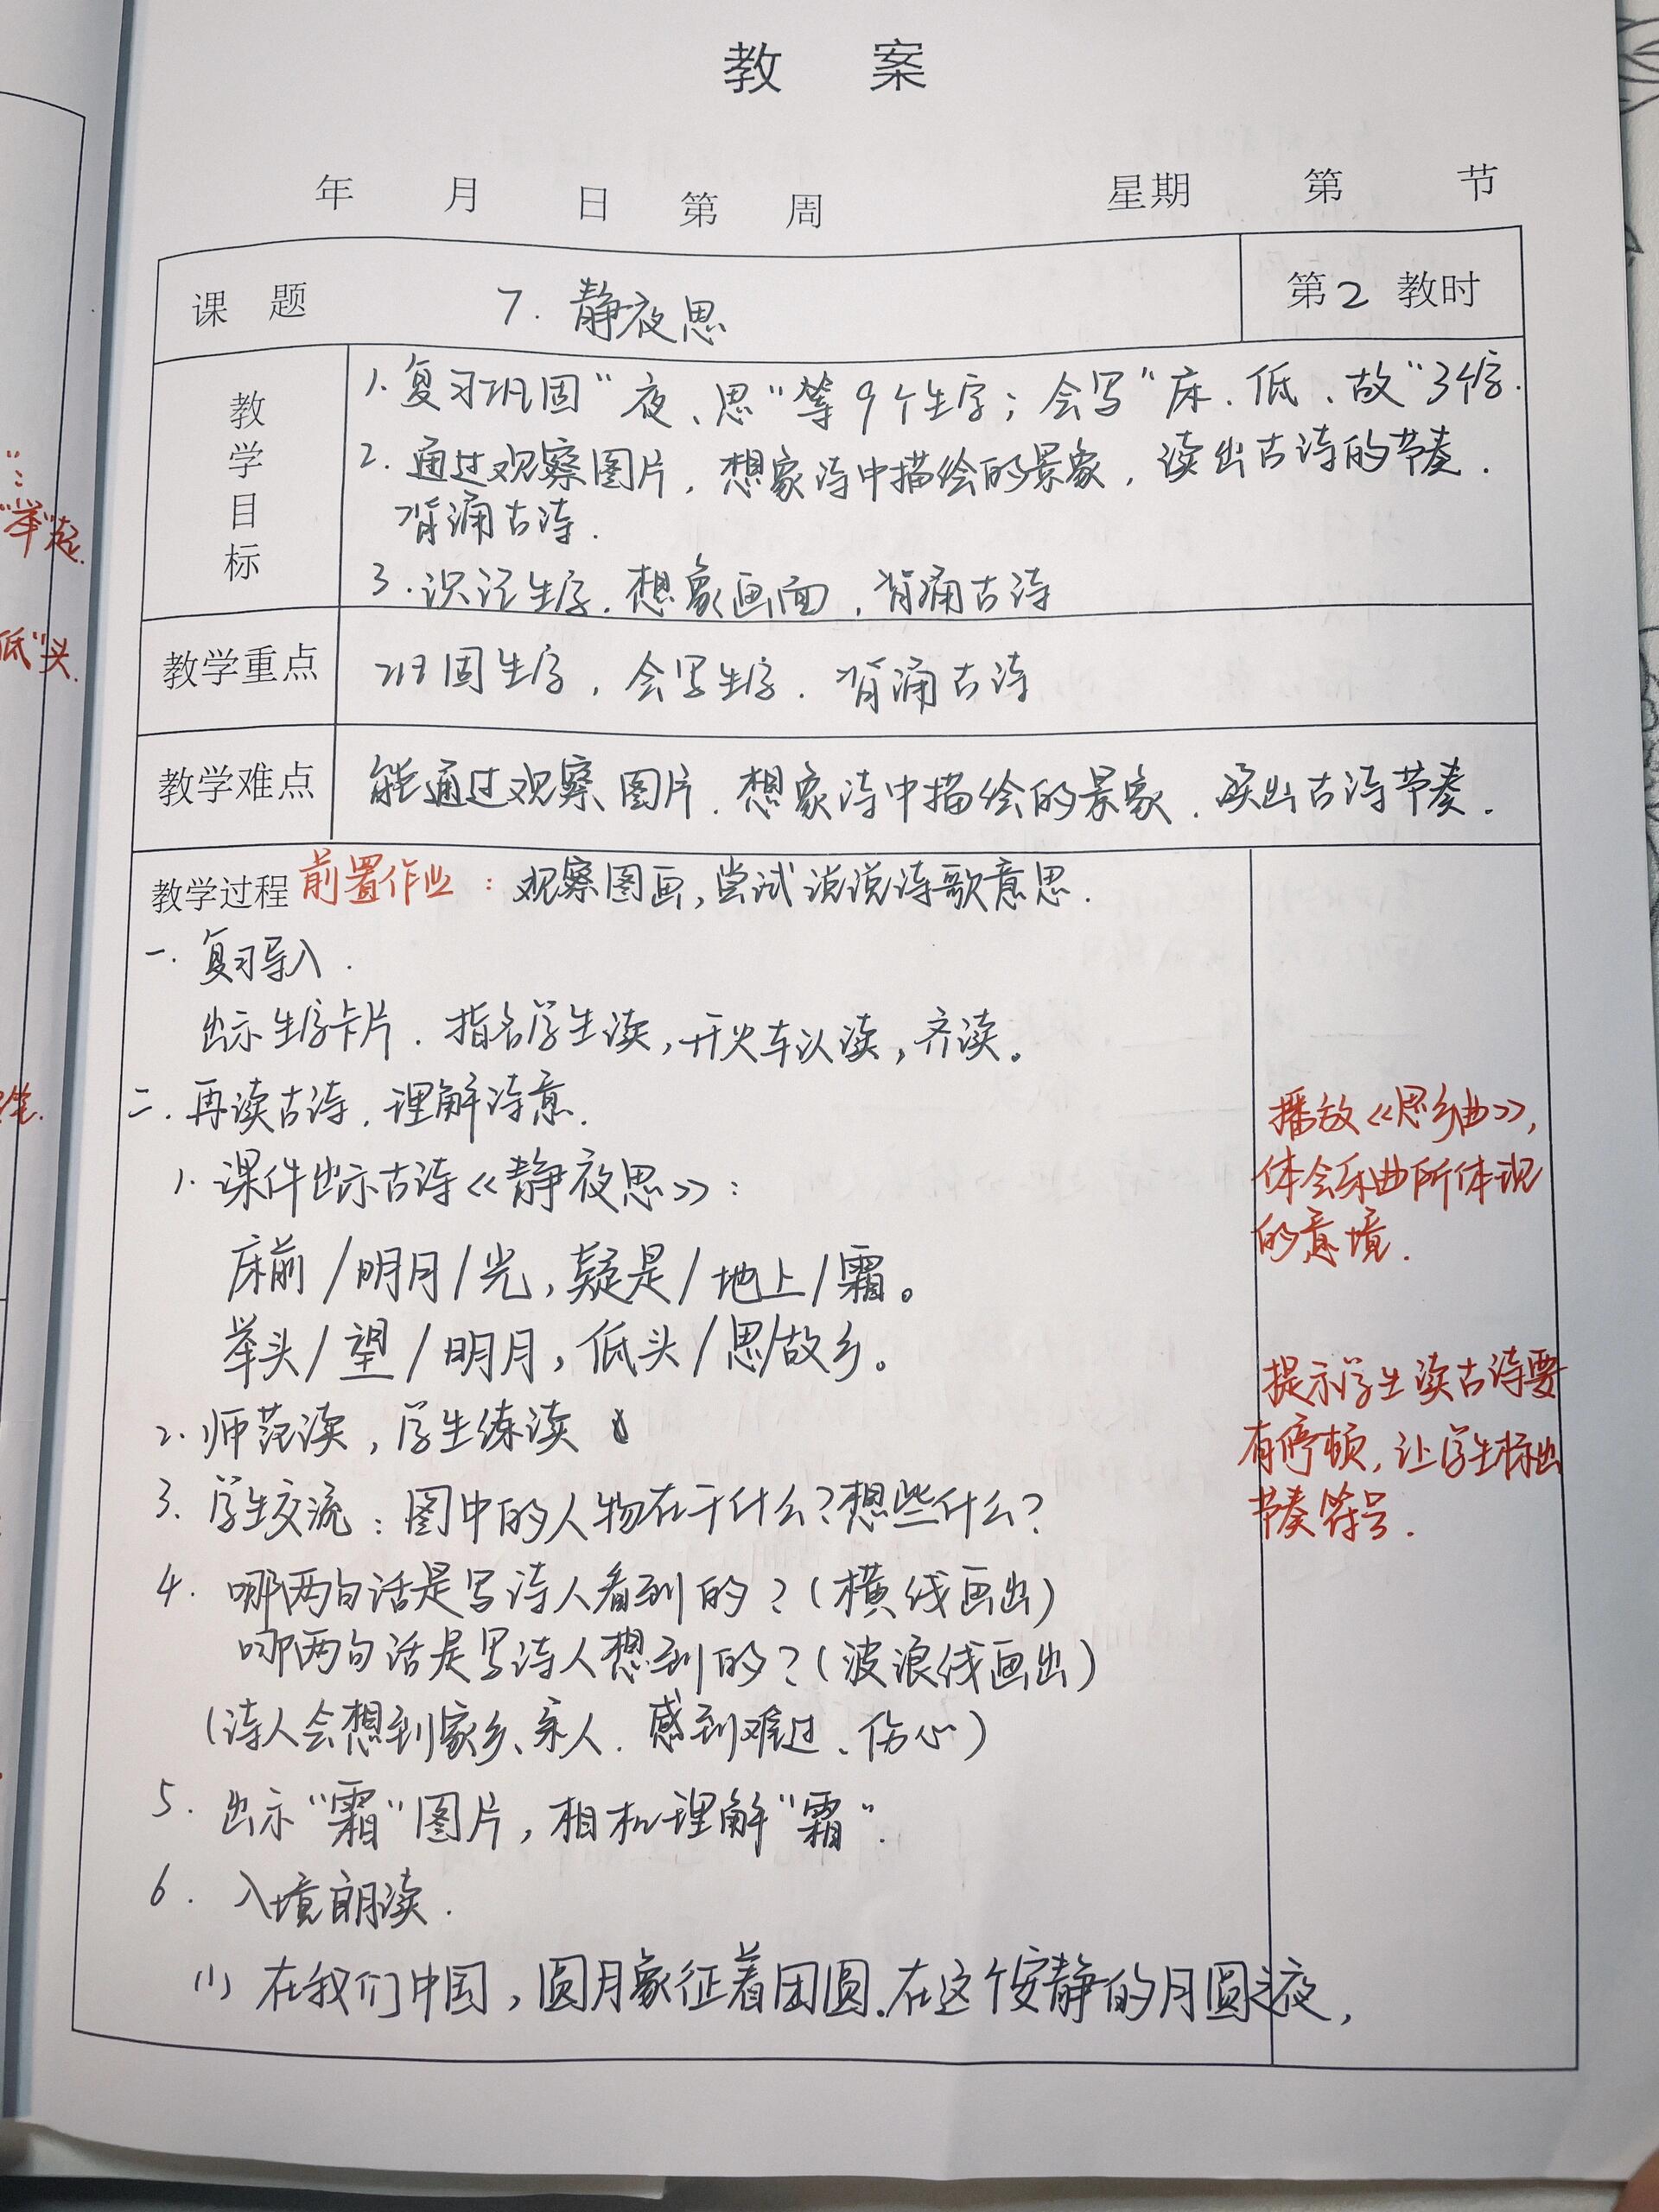 教 案
年 月 日 第 周 星期 第 节
课 题 7. 静夜思 第2 教时
教学目标
1. 复习巩固“夜、思”等9个生字；会写“床、低、故”3个字.
2. 通过观察图片, 想象诗中描绘的景象, 读出古诗的节奏.
背诵古诗.
3. 识记生字. 想象画面, 背诵古诗
教学重点 巩固生字, 会写生字. 背诵古诗
教学难点 能通过观察图片. 想象诗中描绘的景象. 读出古诗节奏.
教学过程 前置作业: 观察图画, 尝试说说诗歌意思.
一. 复习导入.
出示生字卡片. 指名学生读, 开火车认读, 齐读。
二. 再读古诗, 理解诗意.
1. 课件出示古诗《静夜思》:
床前/明月/光, 疑是/地上/霜。
举头/望/明月, 低头/思/故乡。
2. 师范读, 学生练读
3. 学生交流: 图中的人物在干什么? 想些什么?
4. 哪两句话是写诗人看到的? (横线画出)
哪两句话是写诗人想到的? (波浪线画出)
(诗人会想到家乡、亲人. 感到难过、伤心)
5. 出示“霜”图片, 相机理解“霜”.
6. 入境朗读.
(1) 在我们中国, 圆月象征着团圆. 在这个安静的月圆之夜,
播放《思乡曲》,
体会乐曲所体现
的意境.
提示学生读古诗要
有停顿, 让学生标出
节奏符号.
“举”起.
“低”头.